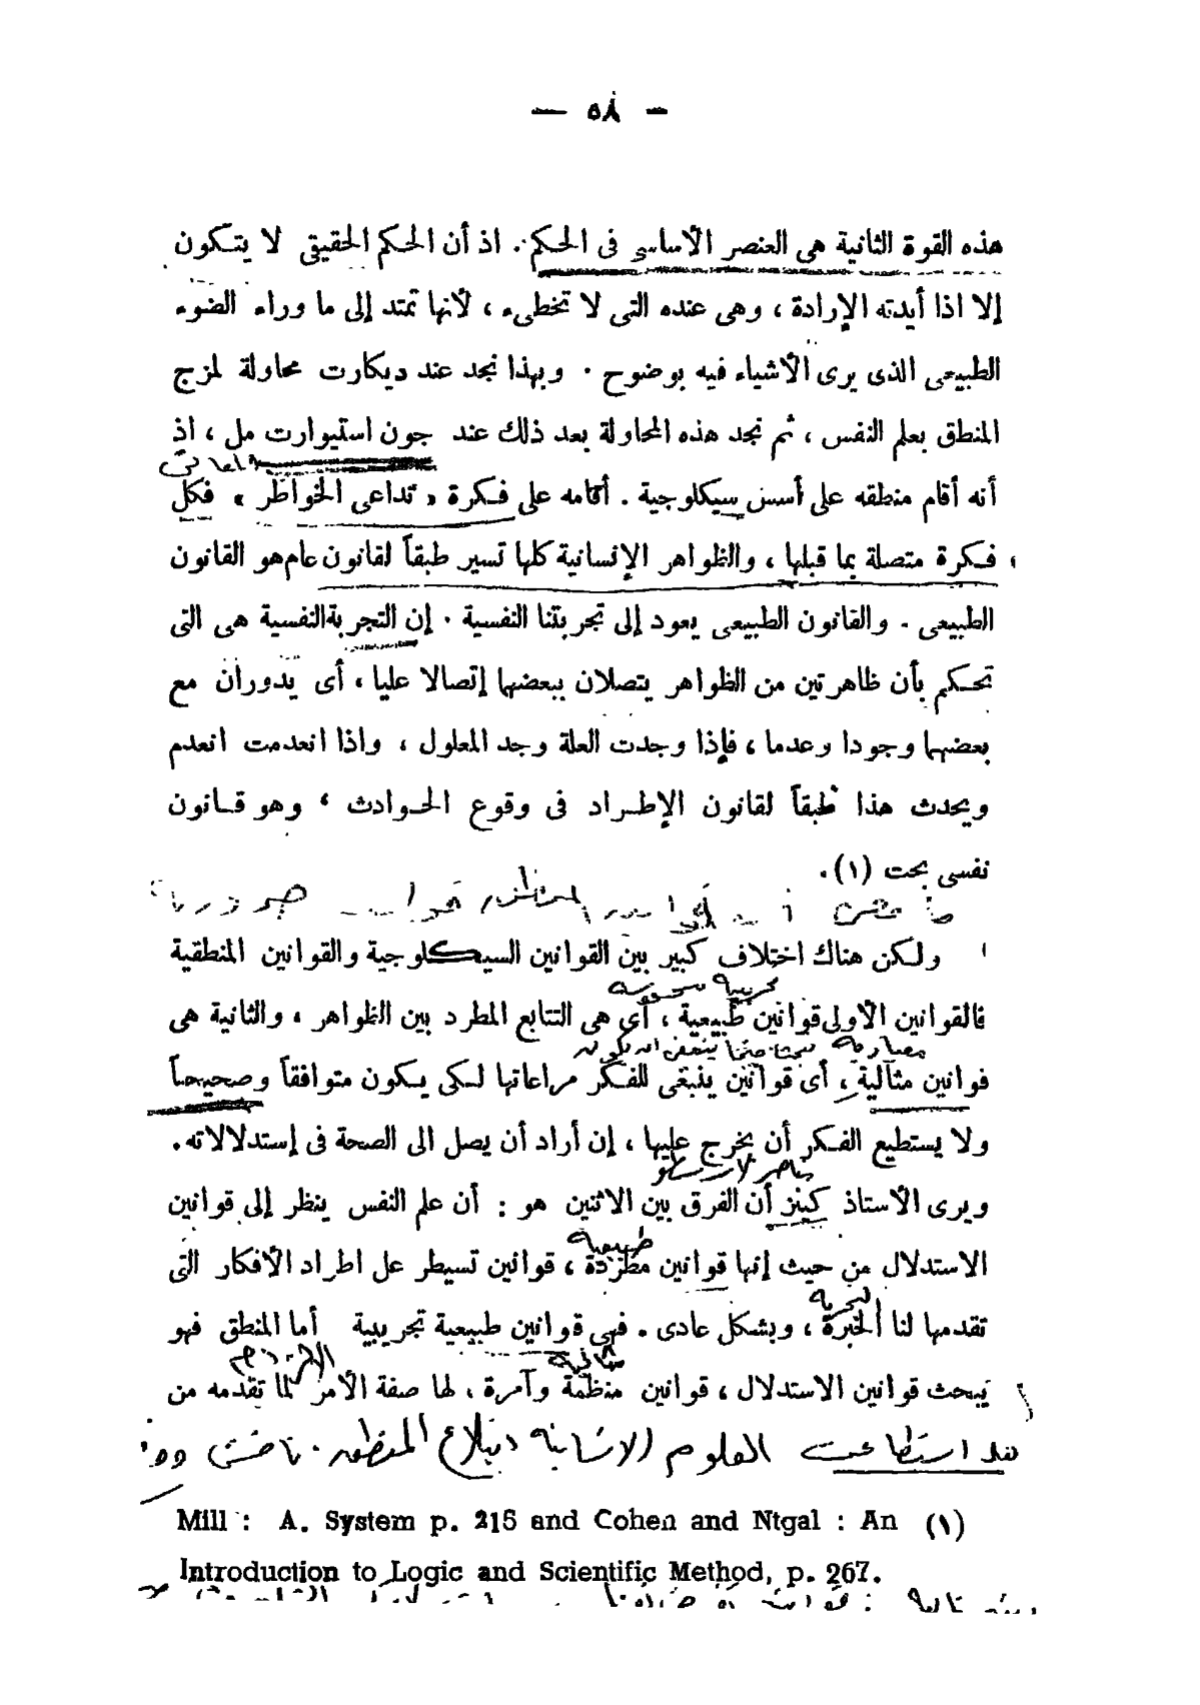 — ٥٨ —
هذه القوة الثانية هى العنصر الأساسى فى الحكم. اذ أن الحكم الحقيقى لا يتكون
إلا اذا أيدته الإرادة ، وهى عنده التى لا تخطىء ، لأنها تمتد إلى ما وراء الضوء
الطبيعى الذى يرى الأشياء فيه بوضوح . وبهذا نجد عند ديكارت محاولة لمزج
المنطق بعلم النفس ، ثم نجد هذه المحاولة بعد ذلك عند جون استيوارت مل ، اذ
أنه أقام منطقه على أسس سيكلوجية . أقامه على فكرة « تداعى الخواطر » فكل
فكرة متصلة بما قبلها ، والظواهر الإنسانية كلها تسير طبقاً لقانون عام هو القانون
الطبيعى . والقانون الطبيعى يعود إلى تجربتنا النفسية . إن التجربة النفسية هى التى
تحكم بأن ظاهرتين من الظواهر يتصلان ببعضها إتصالا عليا ، أى يدوران مع
بعضهما وجودا وعدما ، فإذا وجدت العلة وجد المعلول ، واذا انعدمت انعدم
ويحدث هذا طبقاً لقانون الإطراد فى وقوع الحوادث ، وهو قانون
نفسى بحت (١).
ولكن هناك اختلاف كبير بين القوانين السيكلوجية والقوانين المنطقية
تجريبية
فالقوانين الأولى قوانين طبيعية ، أى هى التتابع المطرد بين الظواهر ، والثانية هى
معيارية
قوانين مثالية ، أى قوانين ينبغى للفكر مراعاتها لكى يكون متوافقاً وصحيحاً
ولا يستطيع الفكر أن يخرج عليها ، إن أراد أن يصل الى الصحة فى إستدلالاته.
ويرى الأستاذ كينز أن الفرق بين الاثنين هو : أن علم النفس ينظر إلى قوانين
طبيعية
الاستدلال من حيث إنها قوانين مطردة ، قوانين تسيطر عل اطراد الأفكار التى
التجربة
تقدمها لنا الخبرة ، وبشكل عادى . فهى قوانين طبيعية تجريبية أما المنطق فهو
يبحث قوانين الاستدلال ، قوانين منظمة وآمرة ، لها صفة الأمر لما تقدمه من
استطاعت العلوم الإنسانية ابتلاع المنطق
Mill : A. System p. 215 and Cohen and Ntgal : An (١)
Introduction to Logic and Scientific Method, p. 267.